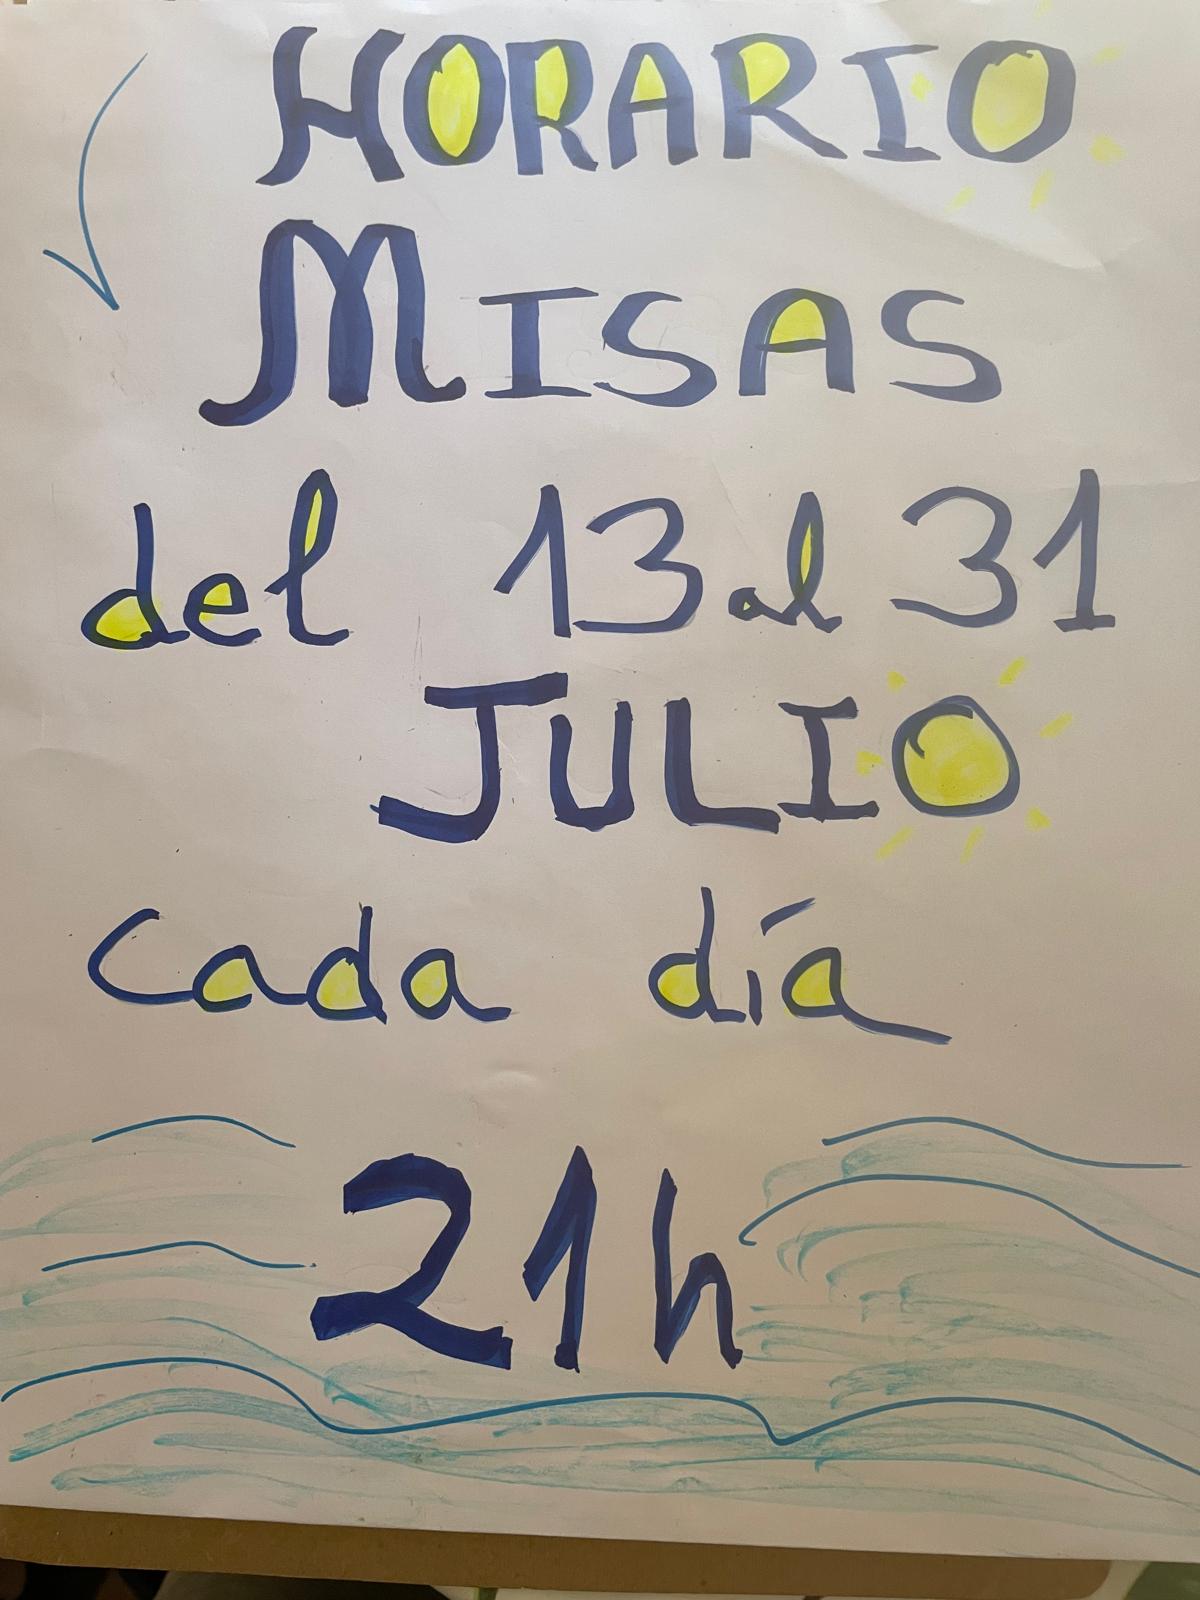 HORARIO
MISAS
del 13 al 31
JULIO
Cada día
21h